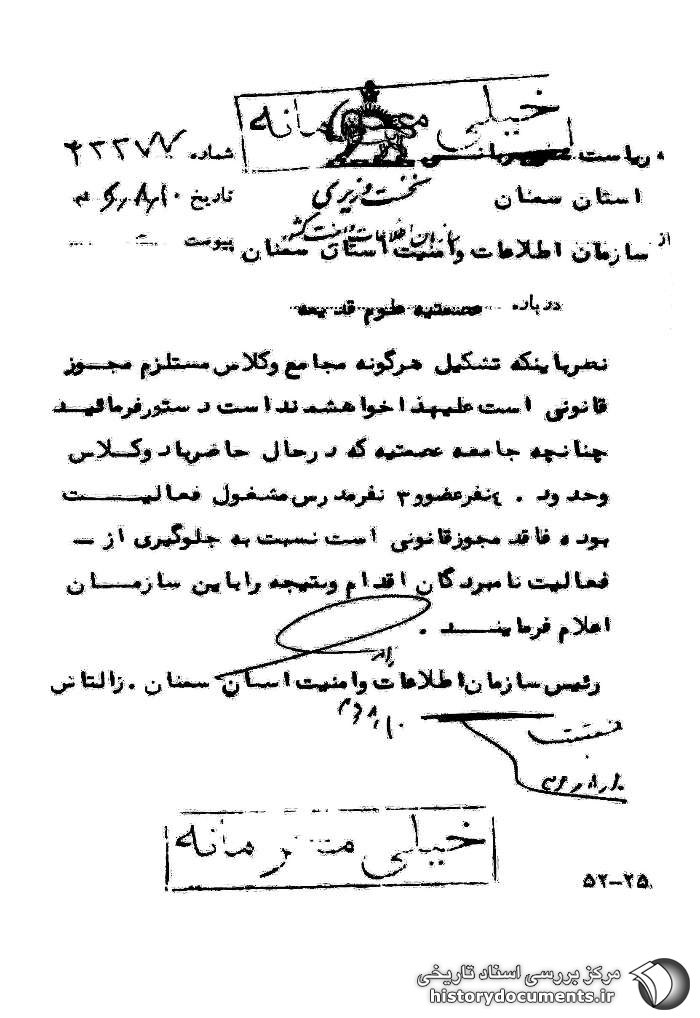 خیلی محرمانه
شماره ۴۲۲۷۷
ریاست
تاریخ
نخست وزیری
استان سمنان
سازمان اطلاعات و امنیت کشور
پیوست
از سازمان اطلاعات وامنیت استان سمنان
درباره
نظرباینکه تشکیل هرگونه مجامع وکلاس مستلزم مجوز
قانونی است علیهذا خواهشمند است دستورفرمائید
چنانچه جامعه عصمتیه که درحال حاضرباد وکلاس
وحدود ۴۰ نفرعضوو۳ نفرمدرس مشغول فعالیت
بوده فاقد مجوزقانونی است نسبت به جلوگیری از –
فعالیت نامبردگان اقدام ونتیجه راباین سازمان
اعلام فرمایند .
رئیس سازمان اطلاعات وامنیت استان سمنان . زالتاش
خیلی محرمانه
۵۲–۲۵
مرکز بررسی اسناد تاریخی
historydocuments.ir